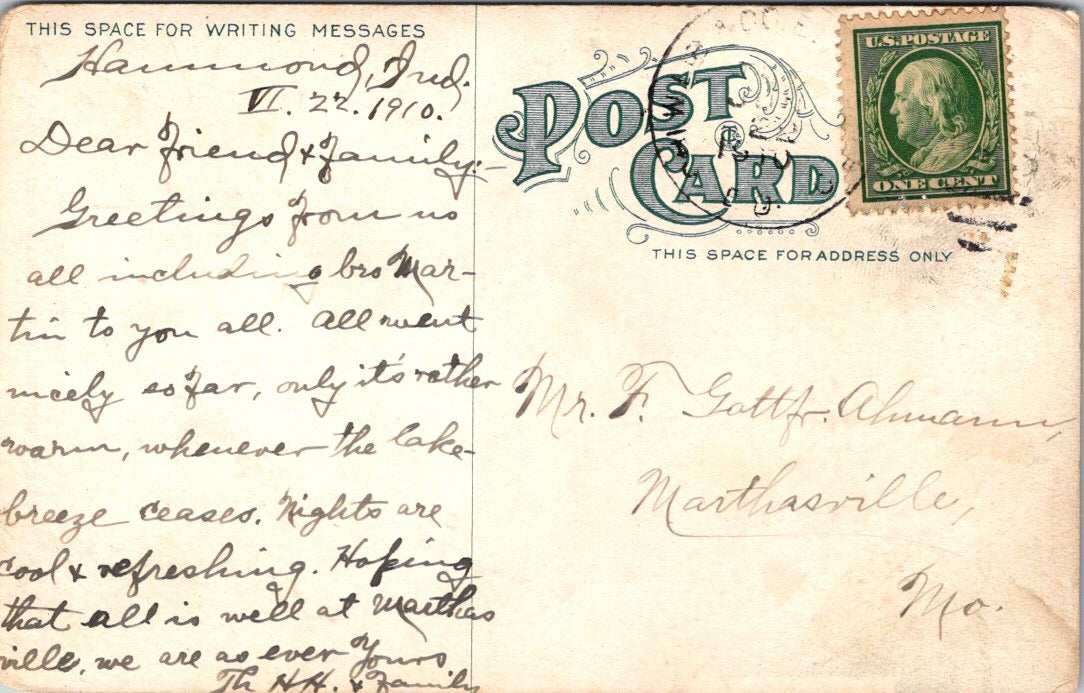 THIS SPACE FOR WRITING MESSAGES
Hammond, Ind.
VI. 22. 1910.
Dear Friend & Family:-
Greetings from us
all including bro Mar-
tin to you all. All went
nicely so far, only it's rather
warm, whenever the lake-
breeze ceases. Nights are
cool & refreshing. Hoping
that all is well at Marthas
ville, we are as ever Yours
Th HH. & Family
POST
CARD
U.S. POSTAGE
ONE CENT
THIS SPACE FOR ADDRESS ONLY
Mr. F. Gottfr. Ahmann,
Marthasville,
Mo.